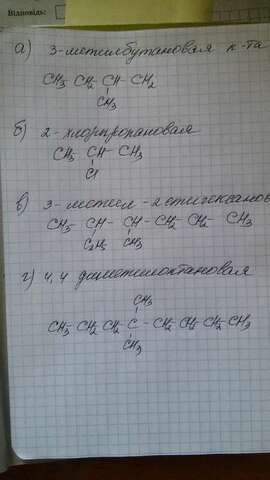 Відповідь:
а) 3-метилбутановая к-та
CH3 CH2 CH - CH2
CH3
б) 2-хлорпропановая
CH3 - CH - CH3
Cl
в) 3-метил-2 этилгексанов
CH3 - CH - CH - CH2 - CH2 - CH3
C2H5 CH3
г) 4,4 диметилоктановая
CH3
CH3 - CH2 CH2 - C - CH2 CH2 CH2 CH3
CH3